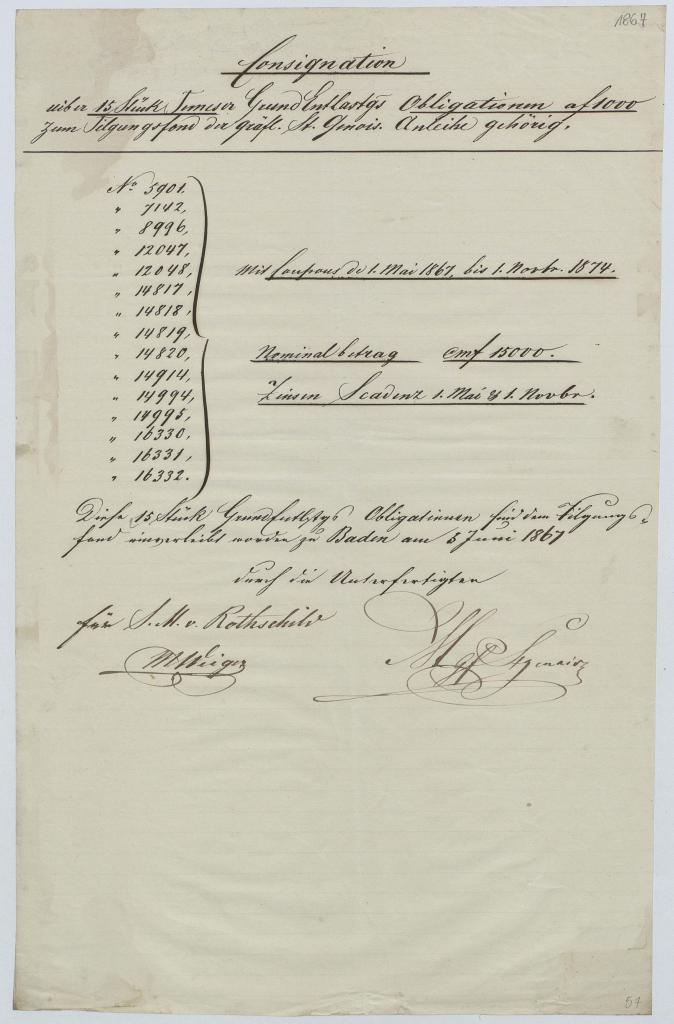 1867
Consignation
ueber 15 Stück Temeser GrundEntlastgs Obligationen af 1000
zum Tilgungsfond der gräfl. St. Genois. Anleihe gehörig.
No 5901.
" 7142,
" 8996,
" 12047,
" 12048,
" 14817,
" 14818,
" 14819,
" 14820,
" 14914,
" 14994,
" 14995,
" 16330,
" 16331,
" 16332.
Mit Coupons de 1. Mai 1867, bis 1. Novbr. 1874.
Nominalbetrag cmf 15000.
Zinsen Scadenz 1. Mai & 1. Novbr.
Diese 15 Stück Grundentlstgs Obligationen sind dem Tilgungs-
fond einverleibt worden zu Baden am 5 Juni 1867
durch die Unterfertigten
für S. M. v. Rothschild
M Gf St Genois
57